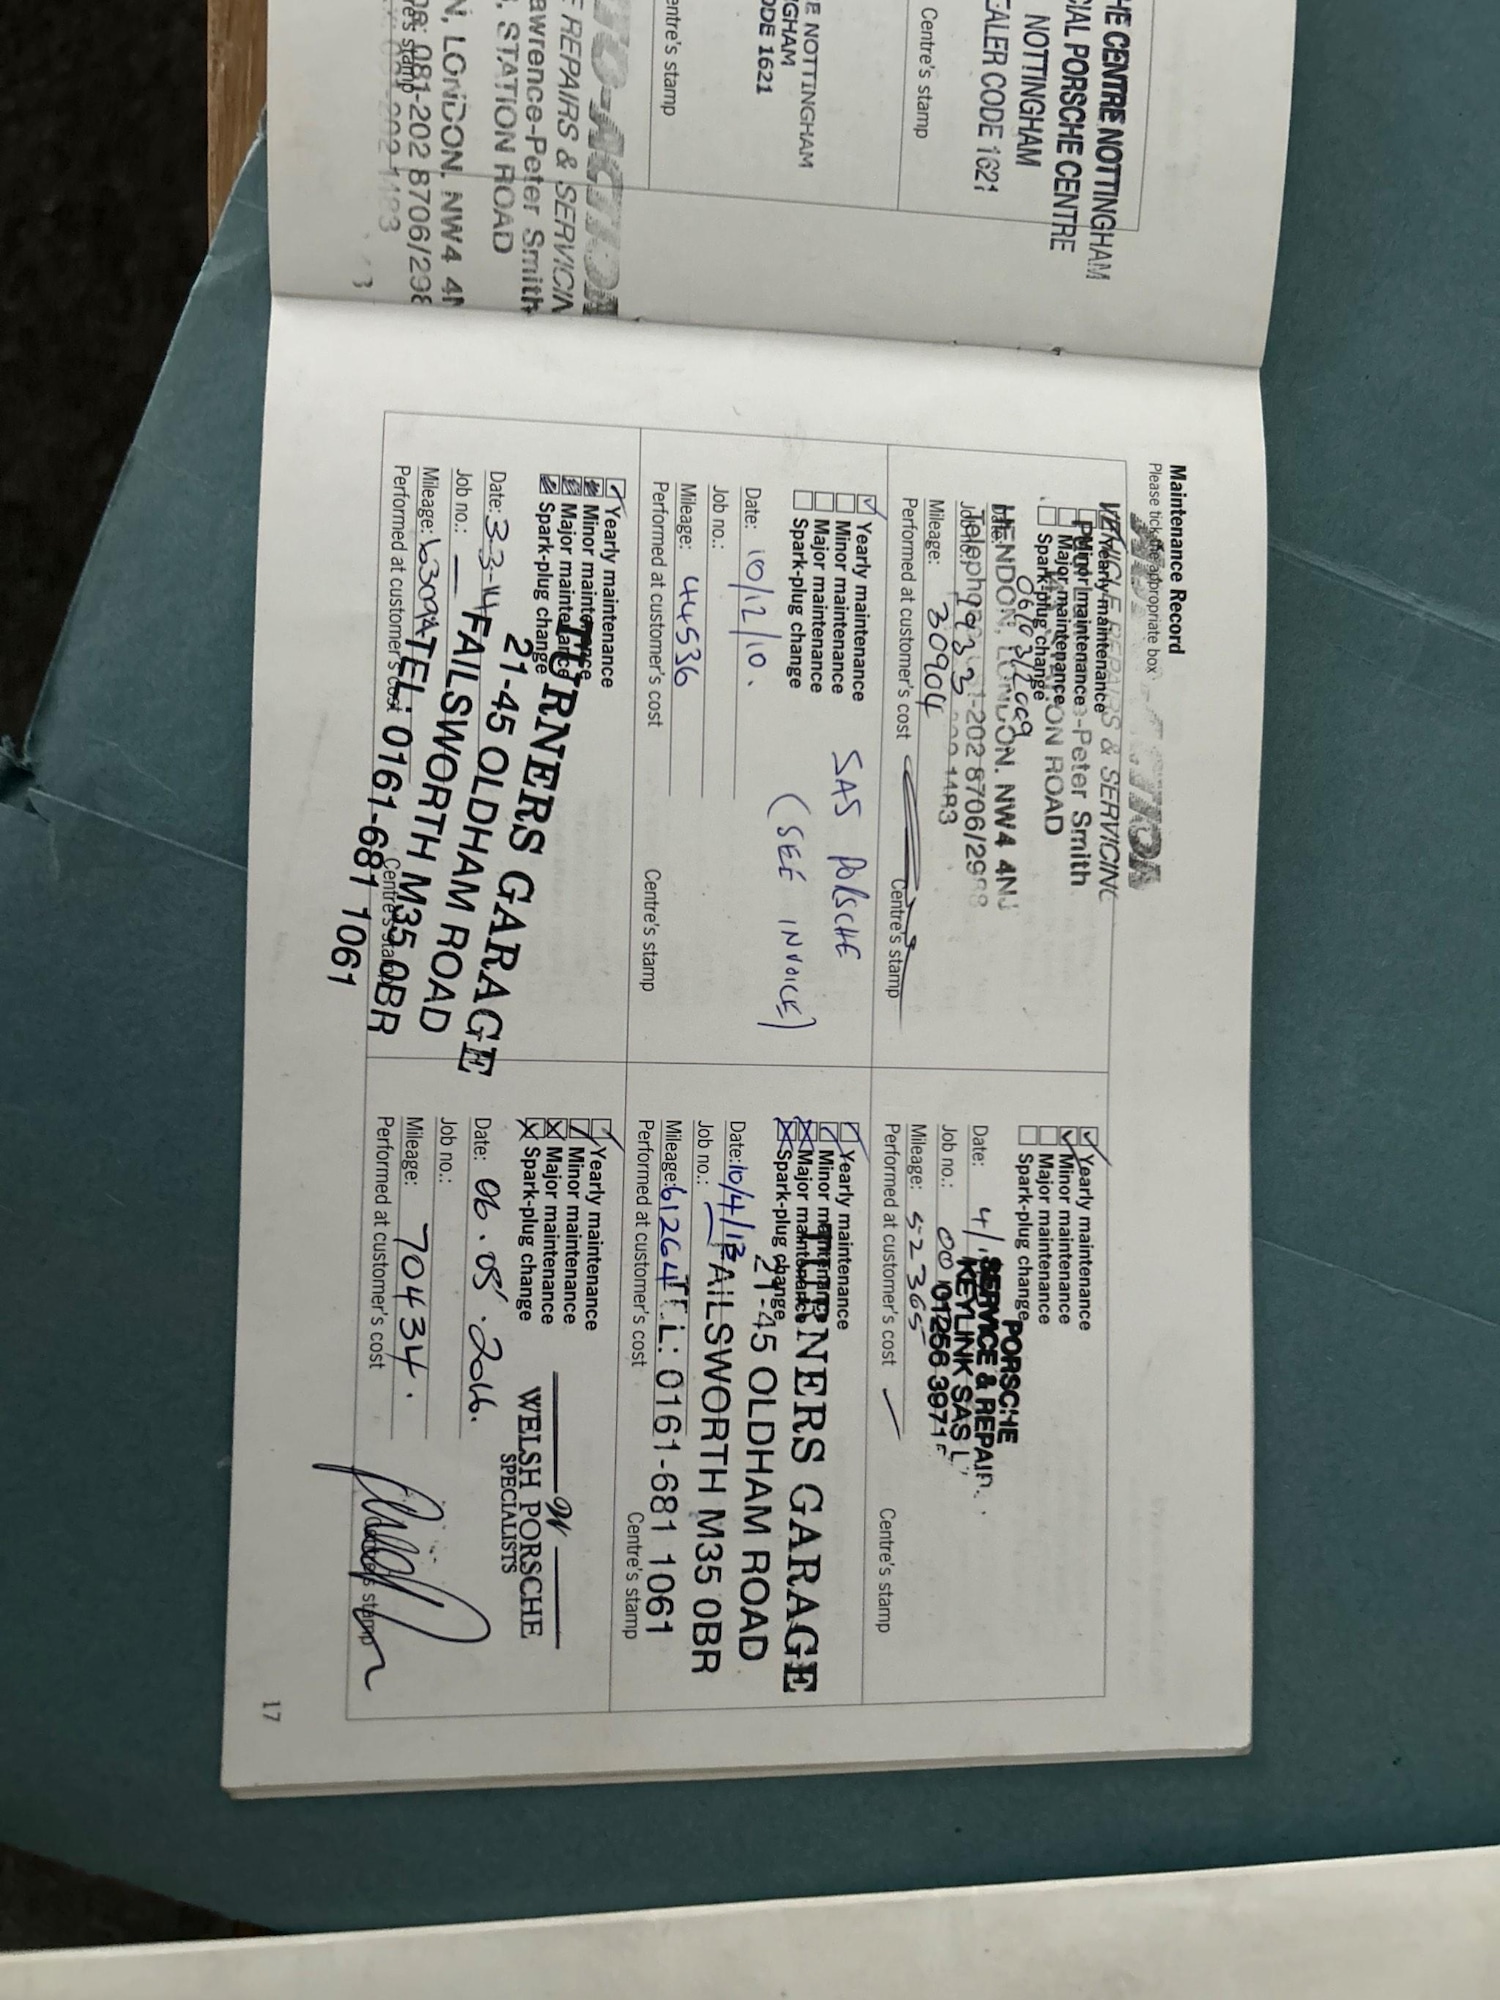 HE CENTRE NOTTINGHAM
CIAL PORSCHE CENTRE
NOTTINGHAM
EALER CODE 1621
Centre's stamp
E NOTTINGHAM
GHAM
ODE 1621
entre's stamp
REPAIRS & SERVICIN
awrence-Peter Smith
STATION ROAD
N, LONDON. NW4 4N
081-202 8706/298
Maintenance Record
Please tick the appropriate box
VEHICLE REPAIRS & SERVICING
Yearly maintenance
Minor maintenance
-Peter Smith
Major maintenance
ION ROAD
Spark-plug change
06/03/2009
HENDON, LONDON. NW4 4NJ
Date:
Telephone
1-202 8706/2988
Job no.:
19233
Mileage: 30904
Performed at customer's cost
Centre's stamp
Yearly maintenance
Minor maintenance
Major maintenance
Spark-plug change
SAS PORSCHE
(SEE INVOICE)
Date: 10/12/10.
Job no.:
Mileage: 44536
Performed at customer's cost
Centre's stamp
Yearly maintenance
Minor maintenance
Major maintenance
Spark-plug change
TURNERS GARAGE
21-45 OLDHAM ROAD
FAILSWORTH M35 0BR
TEL: 0161-681 1061
Date: 3-3-14
Job no.: —
Mileage:
Performed at customer's cost
Centre's stamp
Yearly maintenance
Minor maintenance
Major maintenance
Spark-plug change
PORSCHE
SERVICE & REPAIR
KEYLINK SAS L
01256 3971
Date: 4/
Job no.: 00
Mileage: 52365
Performed at customer's cost
Centre's stamp
Yearly maintenance
Minor maintenance
Major maintenance
Spark-plug change
TURNERS GARAGE
21-45 OLDHAM ROAD
FAILSWORTH M35 0BR
TEL: 0161-681 1061
Date: 10/4/13
Job no.: —
Mileage: 61264
Performed at customer's cost
Centre's stamp
Yearly maintenance
Minor maintenance
Major maintenance
Spark-plug change
WELSH PORSCHE
SPECIALISTS
Date: 06.05.2016.
Job no.:
Mileage: 70434.
Performed at customer's cost
17